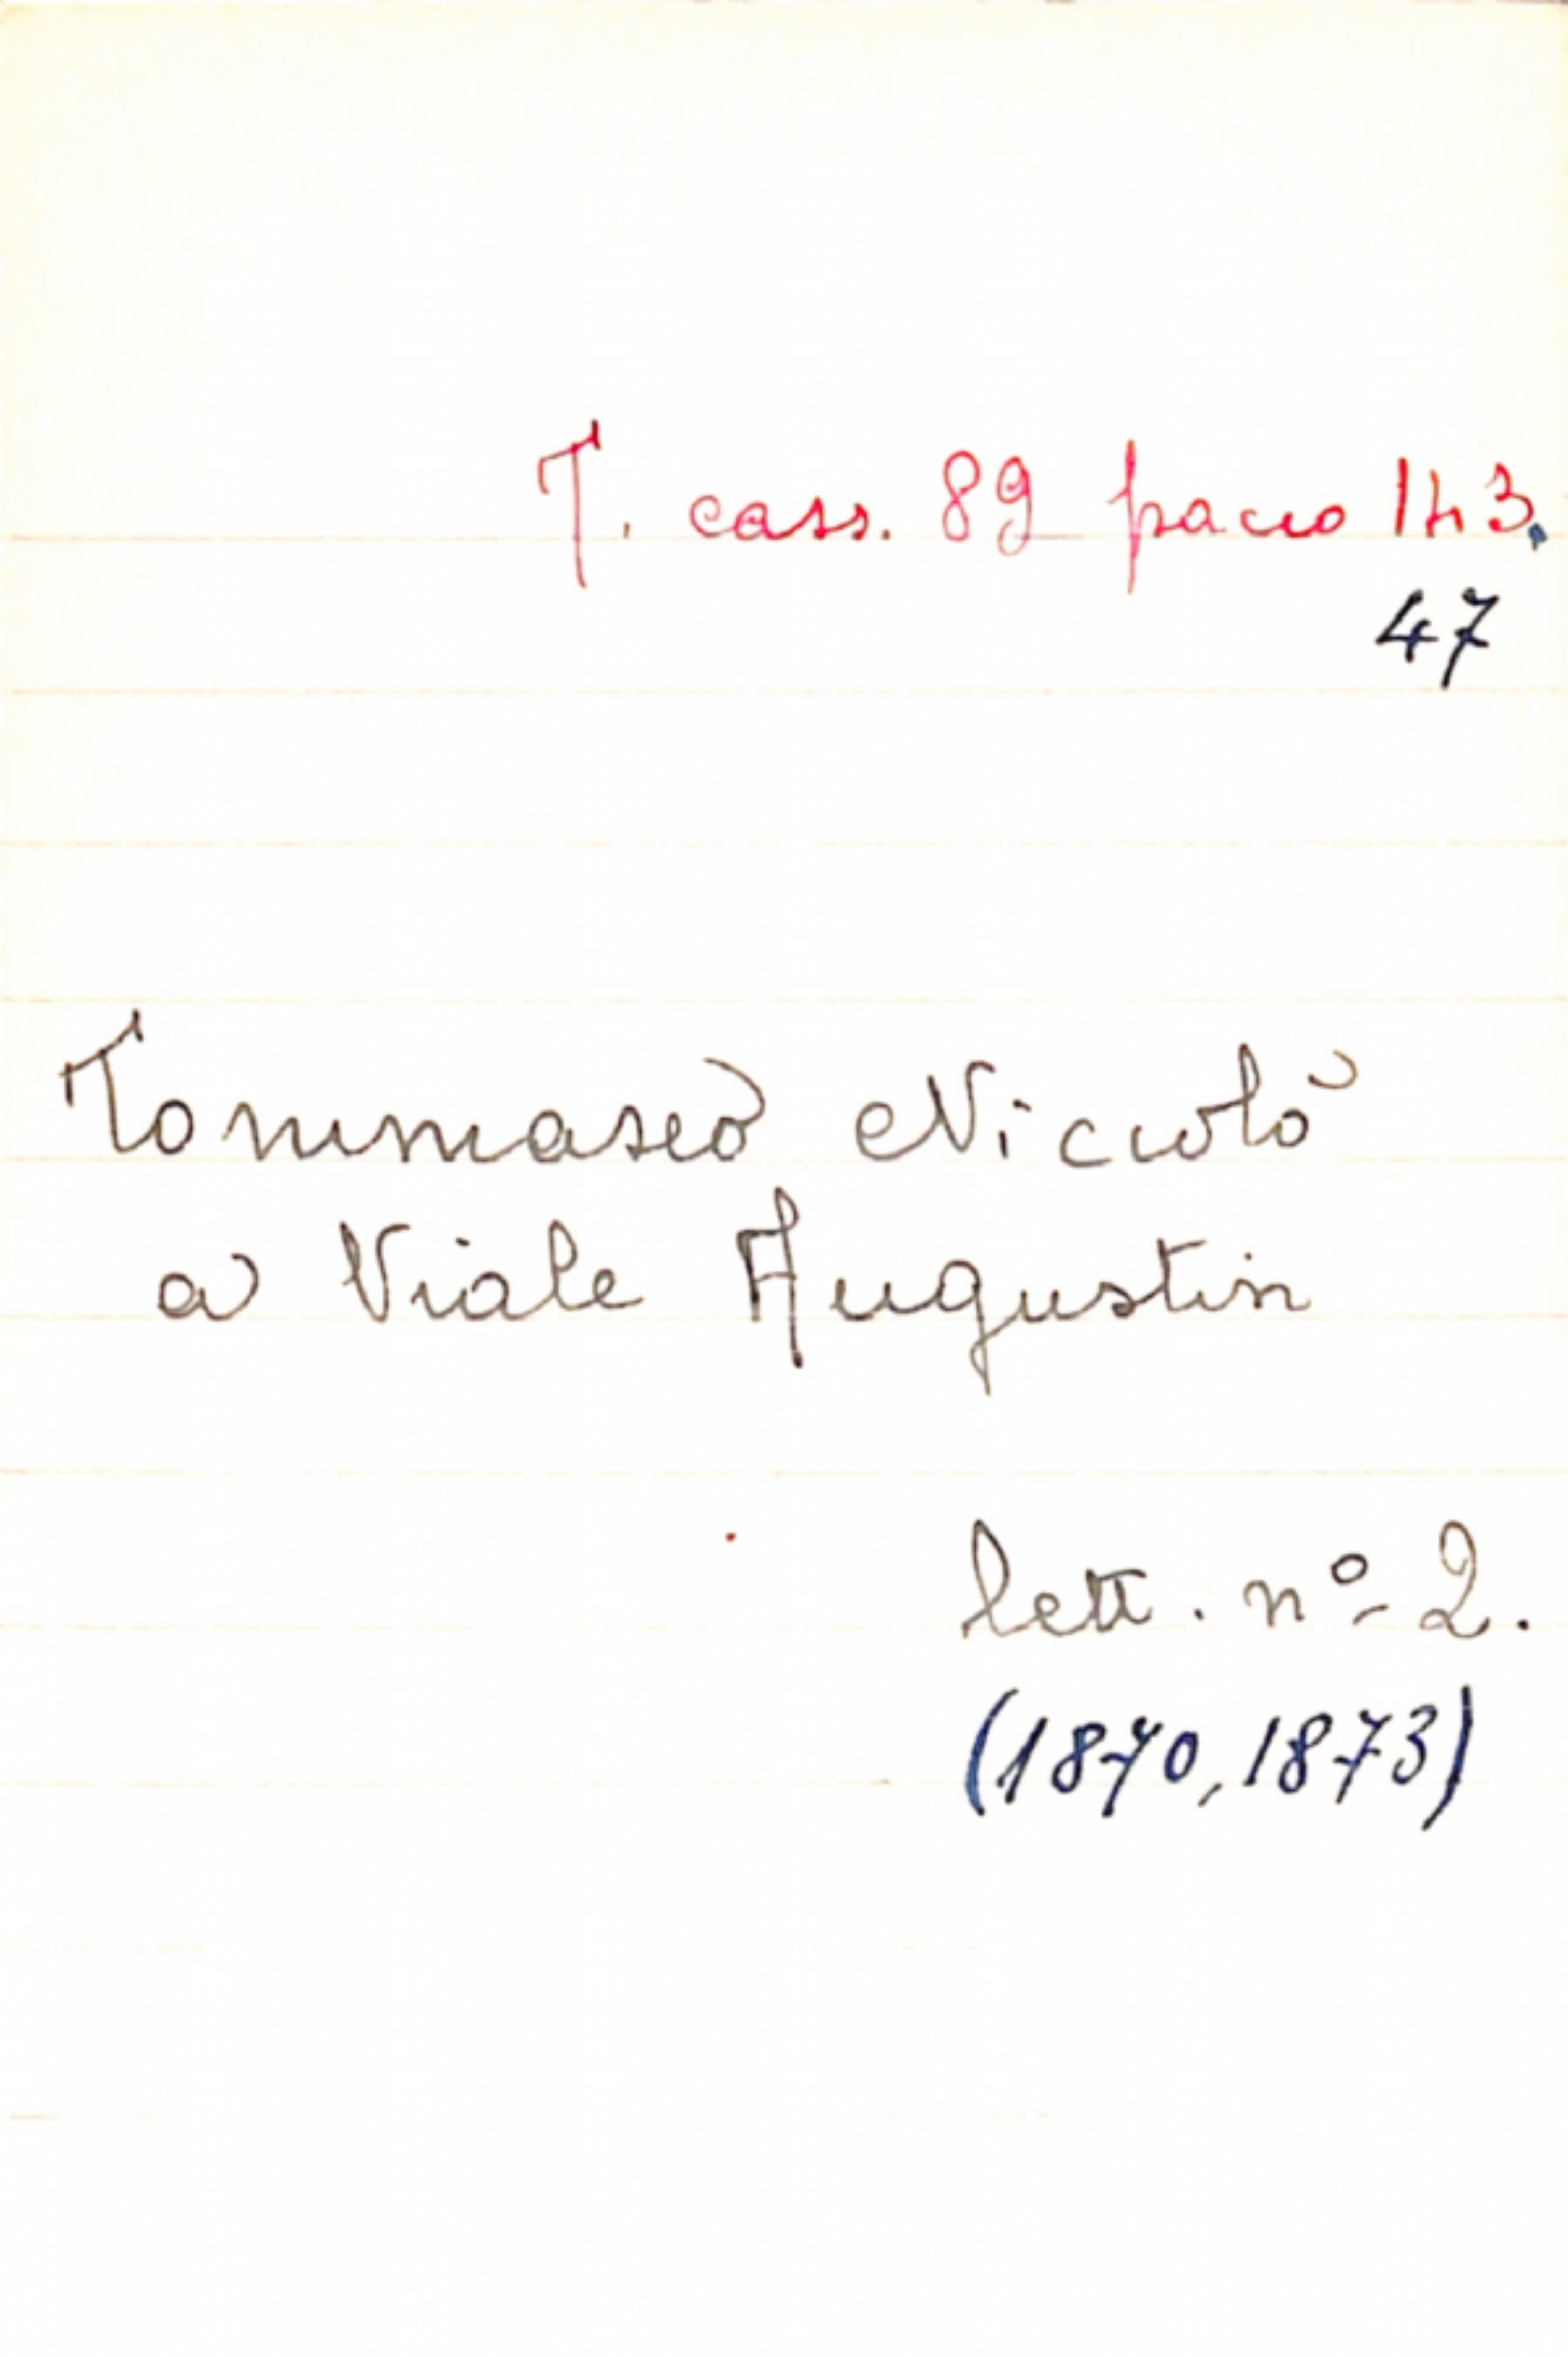 T. cass. 89 pacco 143.
47
Tommaseo Niccolò
a Viale Augustin
lett. nº 2.
(1870, 1873)